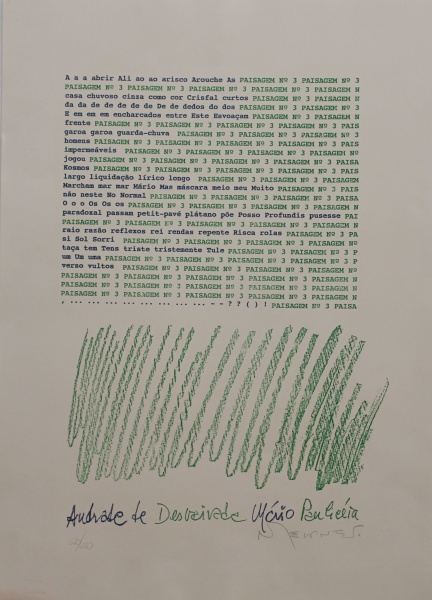 A a a abrir Ali ao ao arisco Arouche As PAISAGEM Nº 3 PAISAGEM Nº 3
PAISAGEM Nº 3 PAISAGEM Nº 3 PAISAGEM Nº 3 PAISAGEM Nº 3 PAISAGEM N
casa chuvoso cinza como cor Crisfal curtos PAISAGEM Nº 3 PAISAGEM N
da da de de de de de De de dedos do dos PAISAGEM Nº 3 PAISAGEM Nº 3
E em em em encharcados entre Este Esvoaçam PAISAGEM Nº 3 PAISAGEM N
frente PAISAGEM Nº 3 PAISAGEM Nº 3 PAISAGEM Nº 3 PAISAGEM Nº 3 PAIS
garoa garoa guarda-chuva PAISAGEM Nº 3 PAISAGEM Nº 3 PAISAGEM Nº 3
homens PAISAGEM Nº 3 PAISAGEM Nº 3 PAISAGEM Nº 3 PAISAGEM Nº 3 PAIS
impermeáveis PAISAGEM Nº 3 PAISAGEM Nº 3 PAISAGEM Nº 3 PAISAGEM Nº
jogou PAISAGEM Nº 3 PAISAGEM Nº 3 PAISAGEM Nº 3 PAISAGEM Nº 3 PAISA
Kosmos PAISAGEM Nº 3 PAISAGEM Nº 3 PAISAGEM Nº 3 PAISAGEM Nº 3 PAIS
largo liquidação lírico longo PAISAGEM Nº 3 PAISAGEM Nº 3 PAISAGEM N
Marcham mar mar Mário Mas máscara meio meu Muito PAISAGEM Nº 3 PAIS
não neste No Normal PAISAGEM Nº 3 PAISAGEM Nº 3 PAISAGEM Nº 3 PAISA
O o o Os Os os PAISAGEM Nº 3 PAISAGEM Nº 3 PAISAGEM Nº 3 PAISAGEM N
paradoxal passam petit-pavé plátano põe Posso Profundis pusesse PAI
PAISAGEM Nº 3 PAISAGEM Nº 3 PAISAGEM Nº 3 PAISAGEM Nº 3 PAISAGEM N
raio razão reflexos rei rendas repente Risca rolas PAISAGEM Nº 3 PA
si Sol Sorri PAISAGEM Nº 3 PAISAGEM Nº 3 PAISAGEM Nº 3 PAISAGEM Nº
taça tem Tens triste tristemente Tule PAISAGEM Nº 3 PAISAGEM Nº 3 P
um Um uma PAISAGEM Nº 3 PAISAGEM Nº 3 PAISAGEM Nº 3 PAISAGEM Nº 3 P
verso vultos PAISAGEM Nº 3 PAISAGEM Nº 3 PAISAGEM Nº 3 PAISAGEM N
PAISAGEM Nº 3 PAISAGEM Nº 3 PAISAGEM Nº 3 PAISAGEM Nº 3 PAISAGEM N
PAISAGEM Nº 3 PAISAGEM Nº 3 PAISAGEM Nº 3 PAISAGEM Nº 3 PAISAGEM N
PAISAGEM Nº 3 PAISAGEM Nº 3 PAISAGEM Nº 3 PAISAGEM Nº 3 PAISAGEM N
, ... ... ... ... ... ... ... ... - - ? ? ( ) ! PAISAGEM Nº 3 PAISA
Andrade de Desvairada Mário Paulicéia